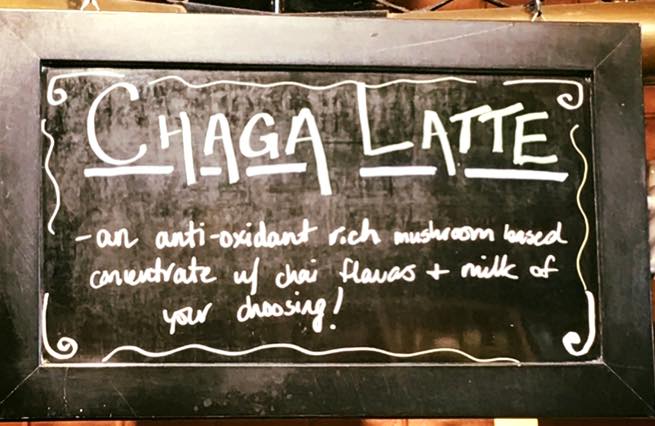 CHAGA LATTE
- an anti-oxidant rich mushroom based
concentrate w/ chai flavas + milk of
your choosing!